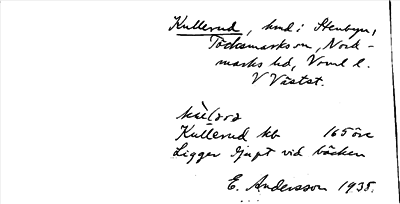 Kullerud, hmd i Stenbyn,
Töcksmarks sn, Nord-
marks hd, Vrml l.
V Västst.
Kullerud hb 165 öre
Ligger djupt vid bäcken
E. Andersson 1935.